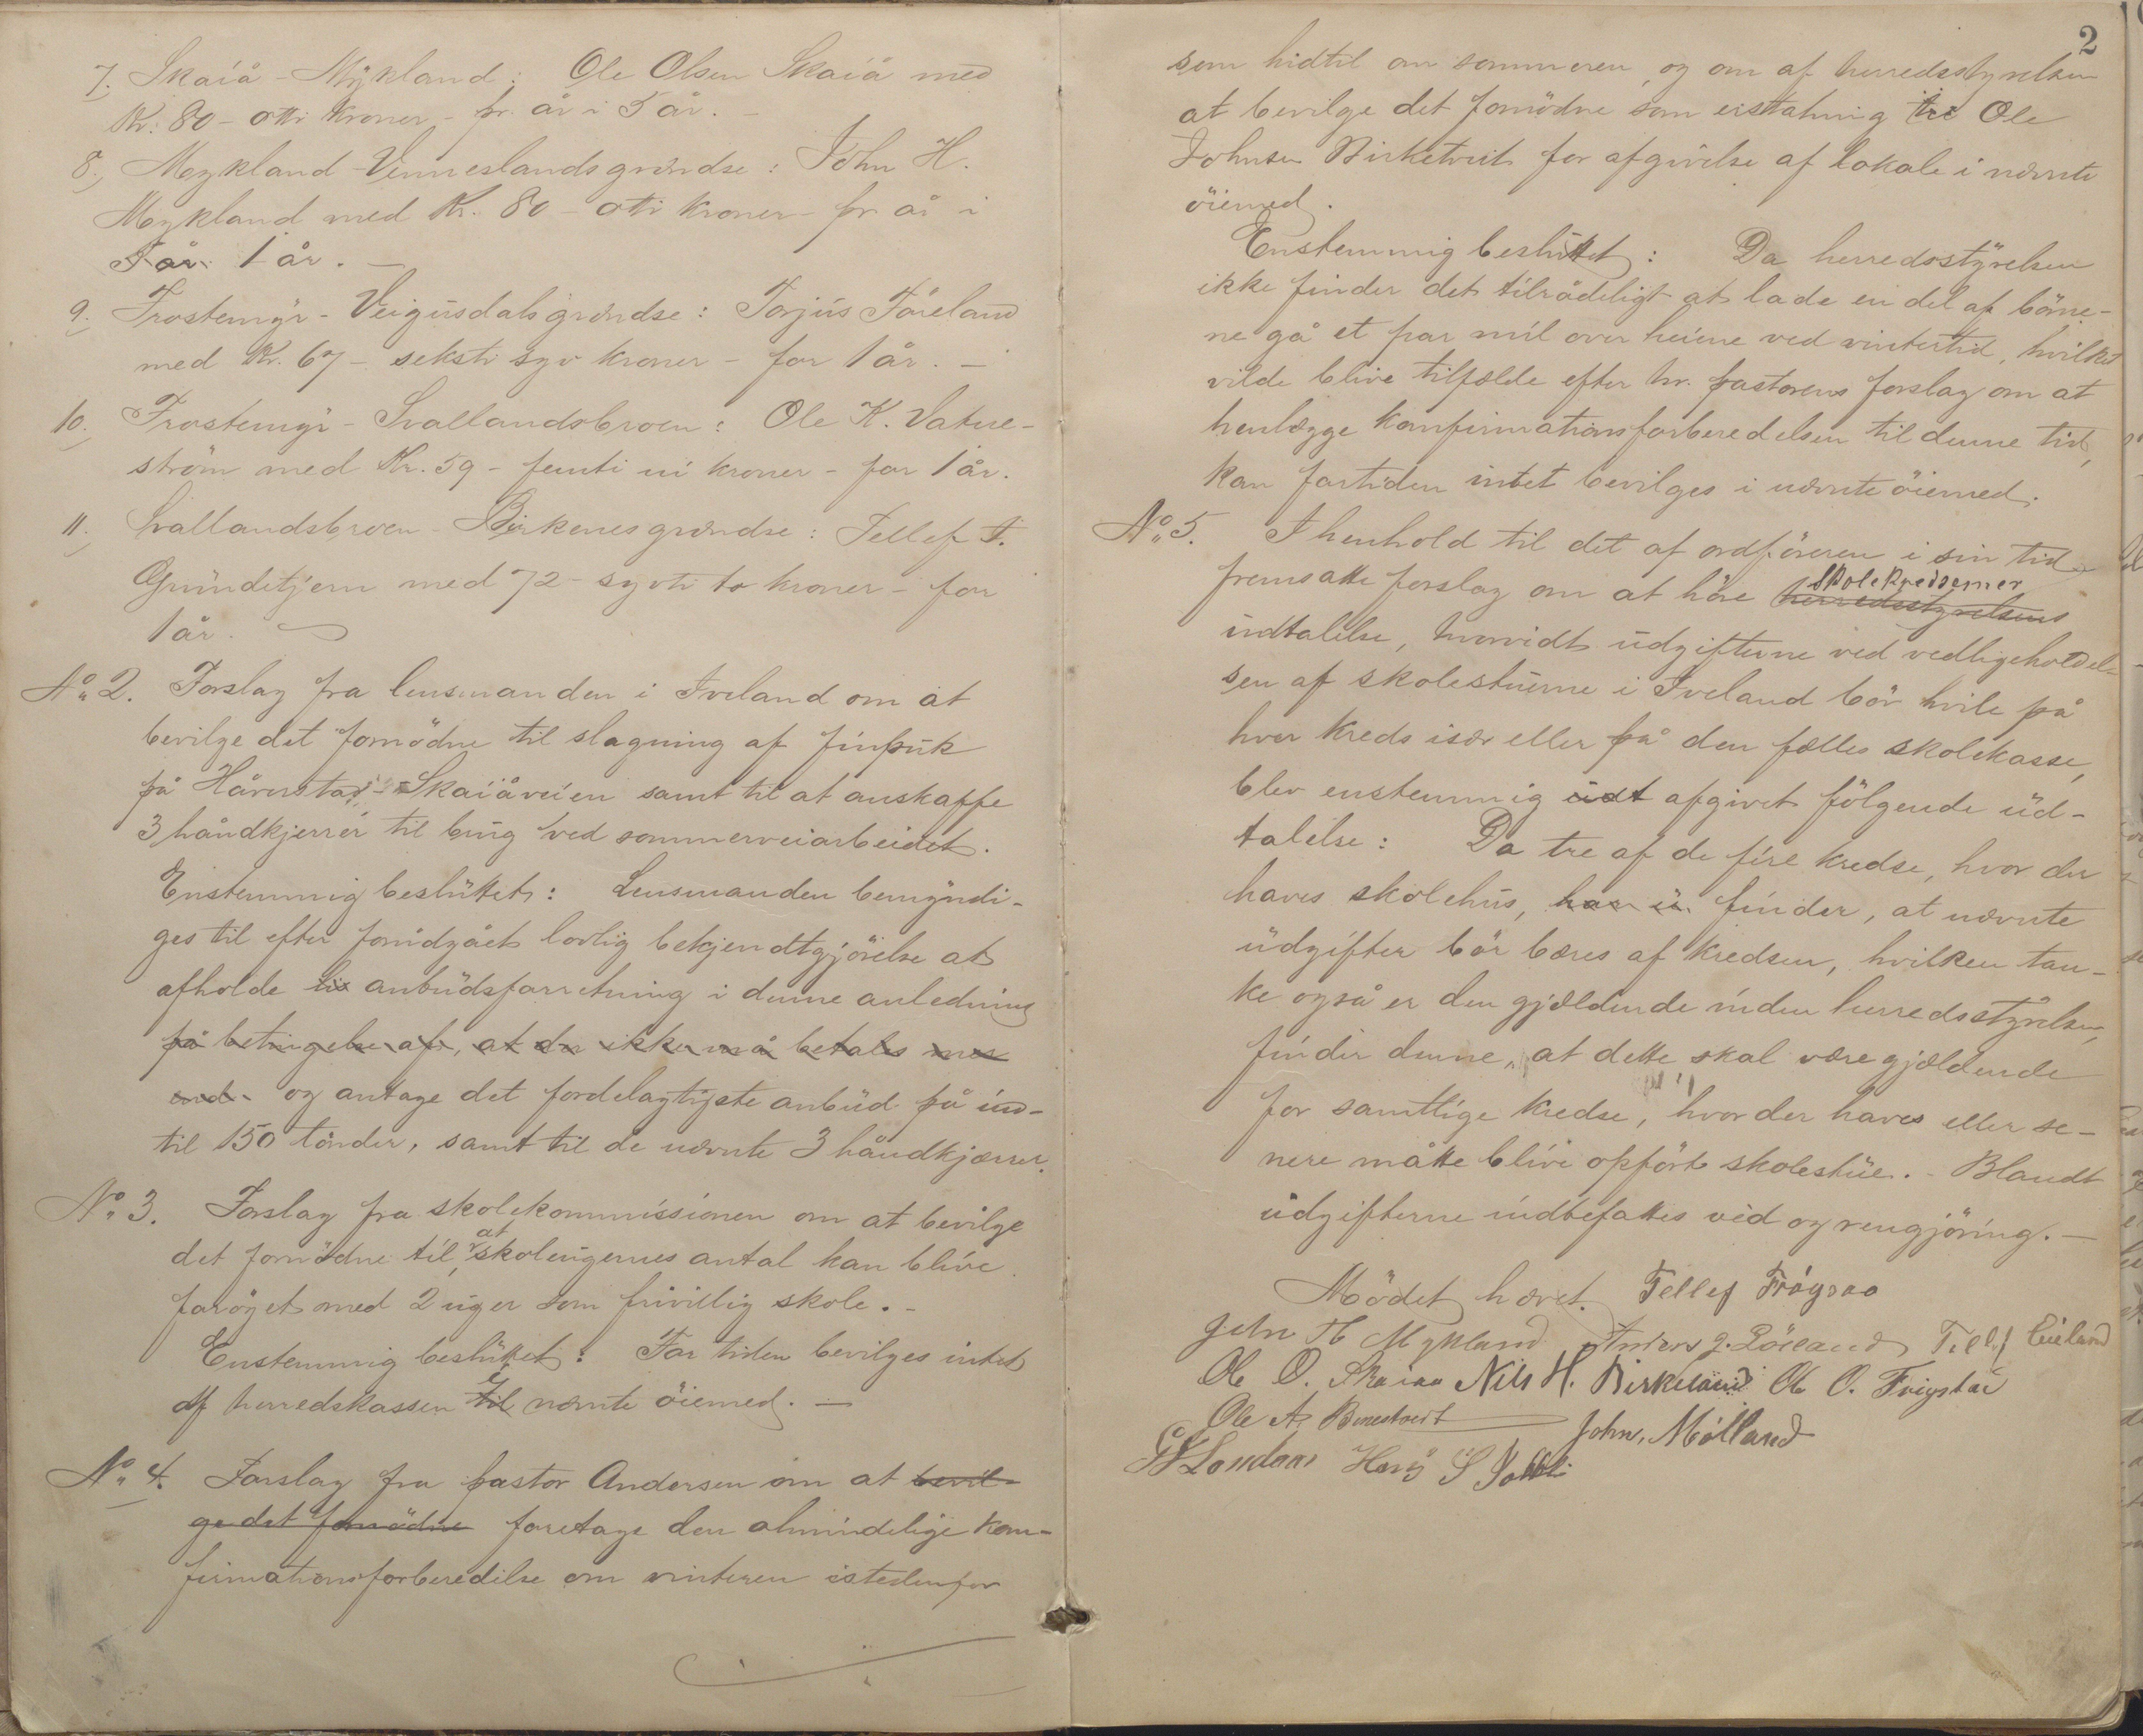 7. Skaiå - Mykland: Ole Olsen Skaiå med
Kr. 80 - otti kroner - pr. år i 5 år. -
8., Mykland - Venneslands grændse: John H.
Mykland med Kr. 80 - otti kroner - pr. år i
5 år. 1 år. -
9. Frostemyr - Veigusdals grændse: Torjus Föreland
med Kr. 67 - seksti syv kroner - for 1 år. -
10. Frostemyr - Svallandsbroen: Ole K. Vatne-
ström med Kr. 59 - femti ni kroner - for 1 år.
11., Svallandsbroen - Birkenes grændse: Tellef T.
Grundetjern med 72 - sytti to kroner - for
1 år.
No 2. Forslag fra lensmanden i Iveland om at
bevilge det fornödne til slagning af finpuk
på Håverstad - Skaiåveien samt til at anskaffe
3 håndkjerrer til brug ved sommerveiarbeidet.
Enstemmig besluttet: Lensmanden bemyndi-
ges til efter forudgået lovlig bekjendtgjörelse at
afholde anbudsforretning i denne anledning
på betingelse af, at der ikke må betales mer
end og antage det fordelagtigste anbud på ind-
til 150 tönder, samt til de nævnte 3 håndkjærrer.
No 3. Forslag fra skolekommissionen om at bevilge
det fornödne til, at skoleugernes antal kan blive
forøget med 2 uger som frivillig skole. -
Enstemmig besluttet: For tiden bevilges intet
af herredskassen til i nævnte öiemed. -
No 4. Forslag fra pastor Andersen om at bevil-
ge det fornödne foretage den almindelige kon-
firmationsforberedelse om vinteren istedenfor
2
som hidtil om sommeren, og om af herredsstyrelsen
at bevilge det fornödne som erstatning til Ole
Johnsen Birketveit for afgivelse af lokale i nævnte
öiemed.
Enstemmig besluttet: Da herredsstyrelsen
ikke finder det tilrådeligt at lade en del af börne-
ne gå et par mil over heiene ved vintertid, hvilket
vilde blive tilfælde efter hr. pastorens forslag om at
henlægge konfirmationsforberedelsen til denne tid,
kan fortiden intet bevilges i nævnte öiemed.
No 5. I henhold til det af ordföreren i sin tid
fremsatte forslag om at höre herredsstyrelsens skolekredsernes
udtalelse, hvorvidt udgifterne ved vedligeholdel-
sen af skolestuerne i Iveland bör hvile på
hver kreds især eller på den fælles skolekasse,
blev enstemmig udt afgivet fölgende ud-
talelse: Da tre af de fire kredse, hvor der
haves skolehus, har u finder, at nævnte
udgifter bör bæres af kredsen, hvilken tan-
ke også er den gjældende inden herredsstyrelsen,
finder denne, at dette skal være gjældende
for samtlige kredse, hvor der haves eller se-
nere måtte blive opfört skolestue. - Blandt
udgifterne indbefattes ved og rengjöring. -
Mödet hævet. Tellef Frögsaa
John H Mykland Anders J. Röiland Tellef Eieland
Ole O. Skaiaa Nils H. Birkeland Ole O. Frigstad
Ole A. Birketveit John. Mölland